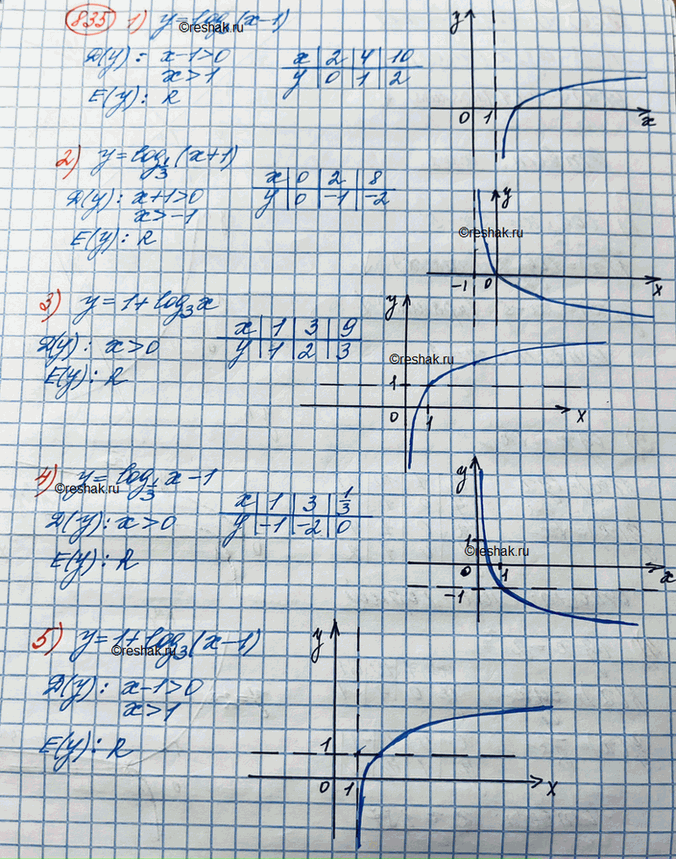 835 1) y=log₃(x-1)
©reshak.ru
D(y): x-1>0
x>1
E(y): R
x 2 4 10
y 0 1 2
y
0 1 x
2) y=log⅓(x+1)
D(y): x+1>0
x>-1
E(y): R
x 0 2 8
y 0 -1 -2
y
©reshak.ru
-1 0 x
3) y=1+log₃x
D(y): x>0
E(y): R
x 1 3 9
y 1 2 3
y
©reshak.ru
1
0 1 x
4) y=log⅓x-1
©reshak.ru
D(y): x>0
E(y): R
x 1 3 1/3
y -1 -2 0
y
1
©reshak.ru
0 1 x
-1
5) y=1+log₃(x-1)
©reshak.ru
D(y): x-1>0
x>1
E(y): R
y
1
0 1 x